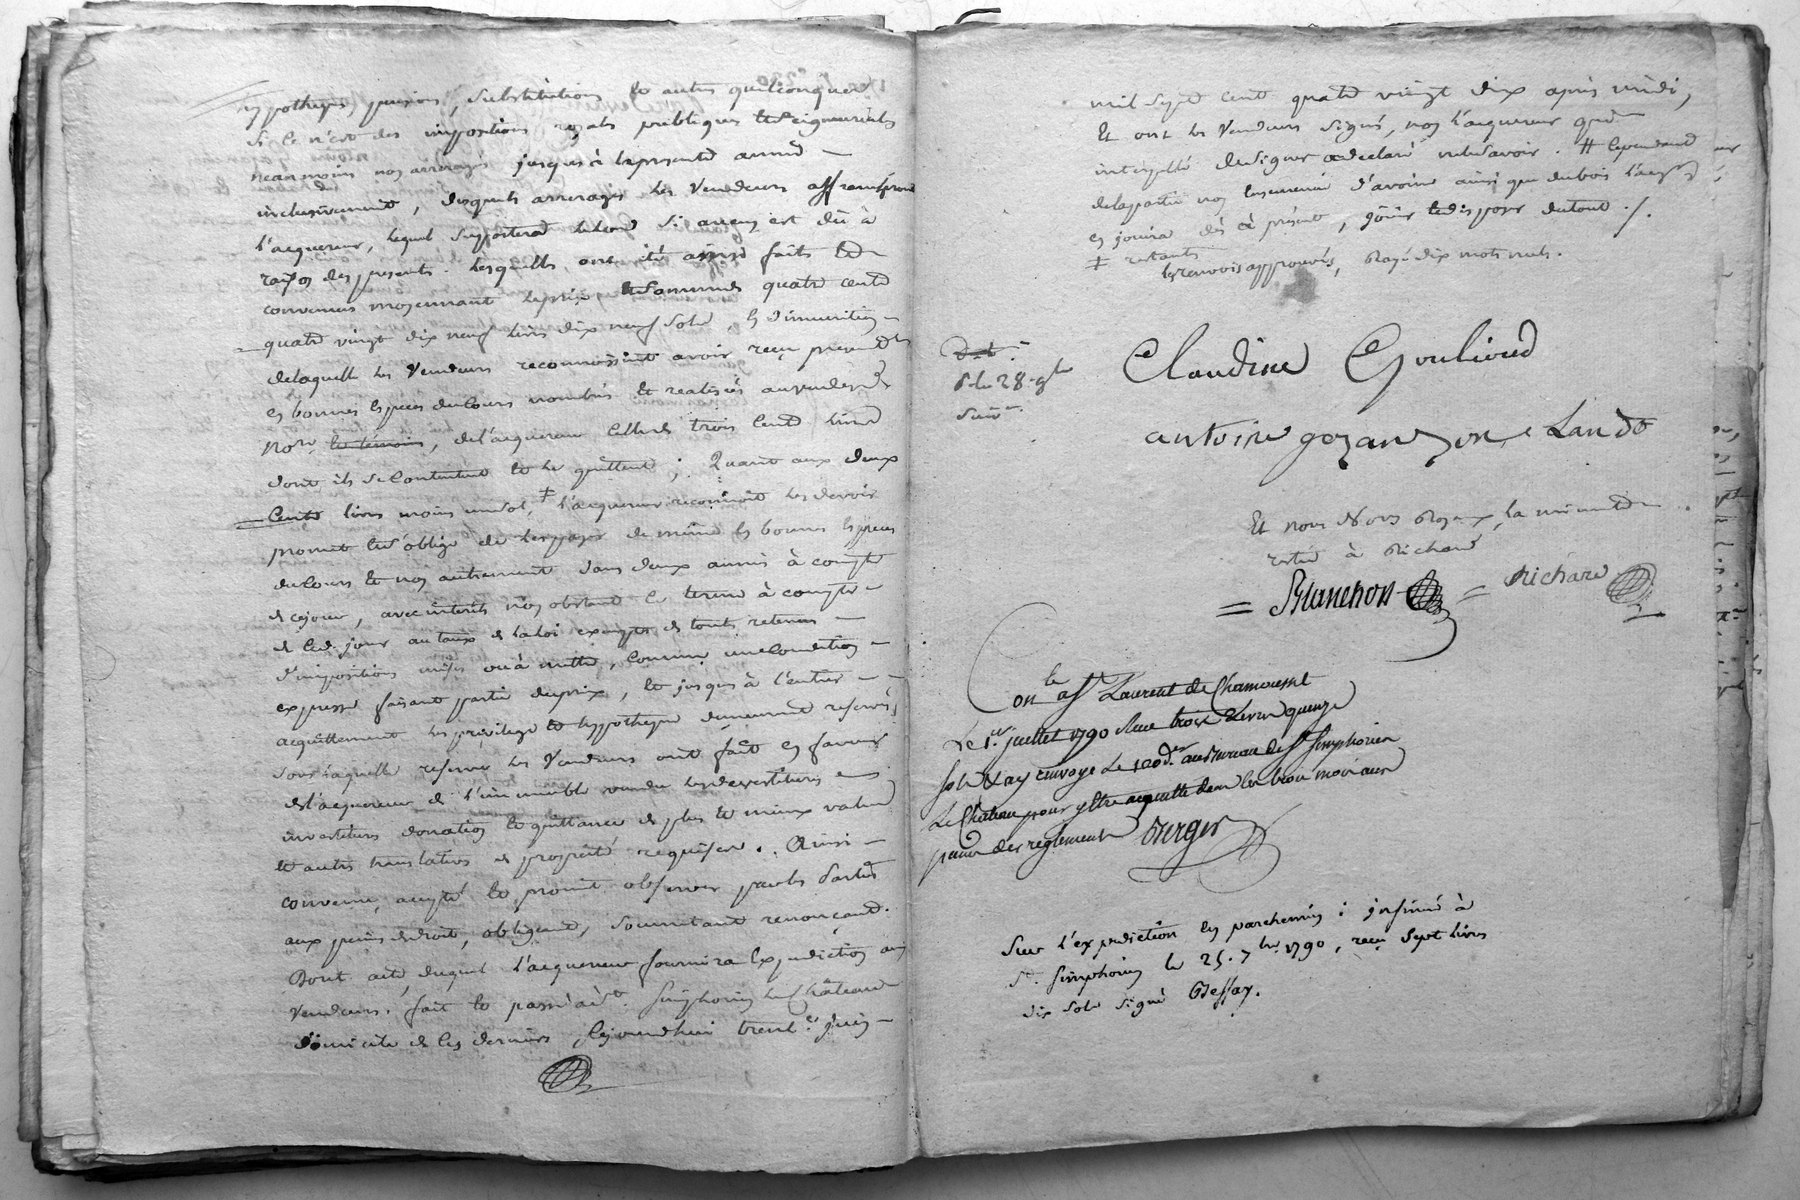 hypotheques pensions, substitutions et autres quelconques
si ce n'est des impositions royales publiques et seigneuriales
neanmoins non arreragés jusques à la presente année
inclusivement, desquels arrerages les vendeurs
l'acquereur, lequel supportera si aucuns est dû à
raison des presentes. Lesquelles ont été ainsi faites et
convenues moyennant le prix et somme de quatre cent
quatre vingt dix neuf livres dix neuf sols,
de laquelle les vendeurs reconnoissent avoir reçu presentt
en bonnes especes du cours nombrés et realisés au vu desd
Nores et témoins, de l'acquereur celle de trois cent livres
dont ils se contentent et le quittent ; Quant aux deux
cents livres moins un sol, ‡ l'acquereur reconnoit les devoir
promet et s'oblige de les payer de même en bonnes especes
du cours et non autrement dans deux années à compter
de ce jour, avec interêts non obstant le terme à compter
de ced. jour au taux de la loi exempts de toutes retenues
d'impositions mises ou à mettre, comme une condition
expresse faisant partie du prix, et jusques à l'entier
acquittement les privilege et hypotheque demeurent reservés,
sous laquelle reserve les vendeurs ont fait en faveur
de l'acquereur de l'immeuble vendu les devestitures
investitures donation et quittance de plus et mieux value
et autres translatives de proprieté requises. Ainsi
convenu, accepté et promis observer par les parties
aux peines de droit, obligeant, soumettant renonçant.
Dont acte, duquel l'acquereur fournira expedition aux
vendeurs. fait et passé à St. Simphorien le Château
domicile de ces derniers, cejourd'hui trente juin
mil sept cent quatre vingt dix après midi,
Et ont les vendeurs signé, non l'acquereur qui
interpellé de signer a declaré ne le savoir. # Cependant
de la partie non ensemencée d'avoine ainsi que du bois l'acqr.
en jouira dès à présent, jouir et disposer du tout ./.
‡ restants
les renvois approuvés, Rayé dix mots nuls.
du 28 9bre
suivt.
Claudine Goulioud
antoine
Et nous Nores Royaux, la minute
restée à Richard
= Blanchon = Richard
Conlé a St Laurent de Chamousset
Le 1er. juillet 1790 Reçu trois livres quinze
sols Vay envoyé le 100d. au Bureau de St Simphorien
Le Château pour y être acquitté dans les trois mois aux
peines des reglements Berger
Sur l'expedition en parchemin : insinué à
St. Simphorien le 25. 7bre 1790, reçu sept livres
dix sols signé Bessay.